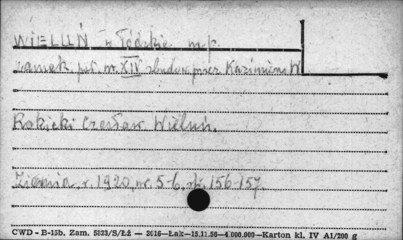 WIELUŃ w. Łódzkie m.p.
zamek poł. w. XIV zbudow. przez Kazimierza W
Rokicki Czesław Wieluń.
Ziemia, r. 1920, nr. 5-6, str. 156-157.
CWD - B-15b. Zam. 5223/S/Łź — 3016—Łek—15.11.50—4.000.000—Karton kl. IV A1/200 g